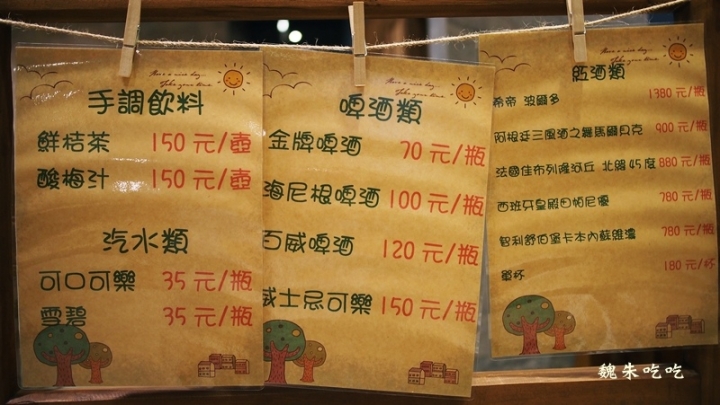 Have a nice day...
Take your time
手調飲料
鮮桔茶 150元/壺
酸梅汁 150元/壺
汽水類
可口可樂 35元/瓶
雪碧 35元/瓶
Have a nice day...
Take your time
啤酒類
金牌啤酒 70元/瓶
海尼根啤酒 100元/瓶
百威啤酒 120元/瓶
威士忌可樂 150元/瓶
紅酒類
希帝 波爾多 1380元/瓶
阿根廷三風酒之羅馬爾貝克 900元/瓶
法國佳布列隆河丘 北緯45度 880元/瓶
西班牙皇殿田帕尼優 780元/瓶
智利舒伯堡卡本內蘇維濃 780元/瓶
單杯 180元/杯
魏朱吃吃